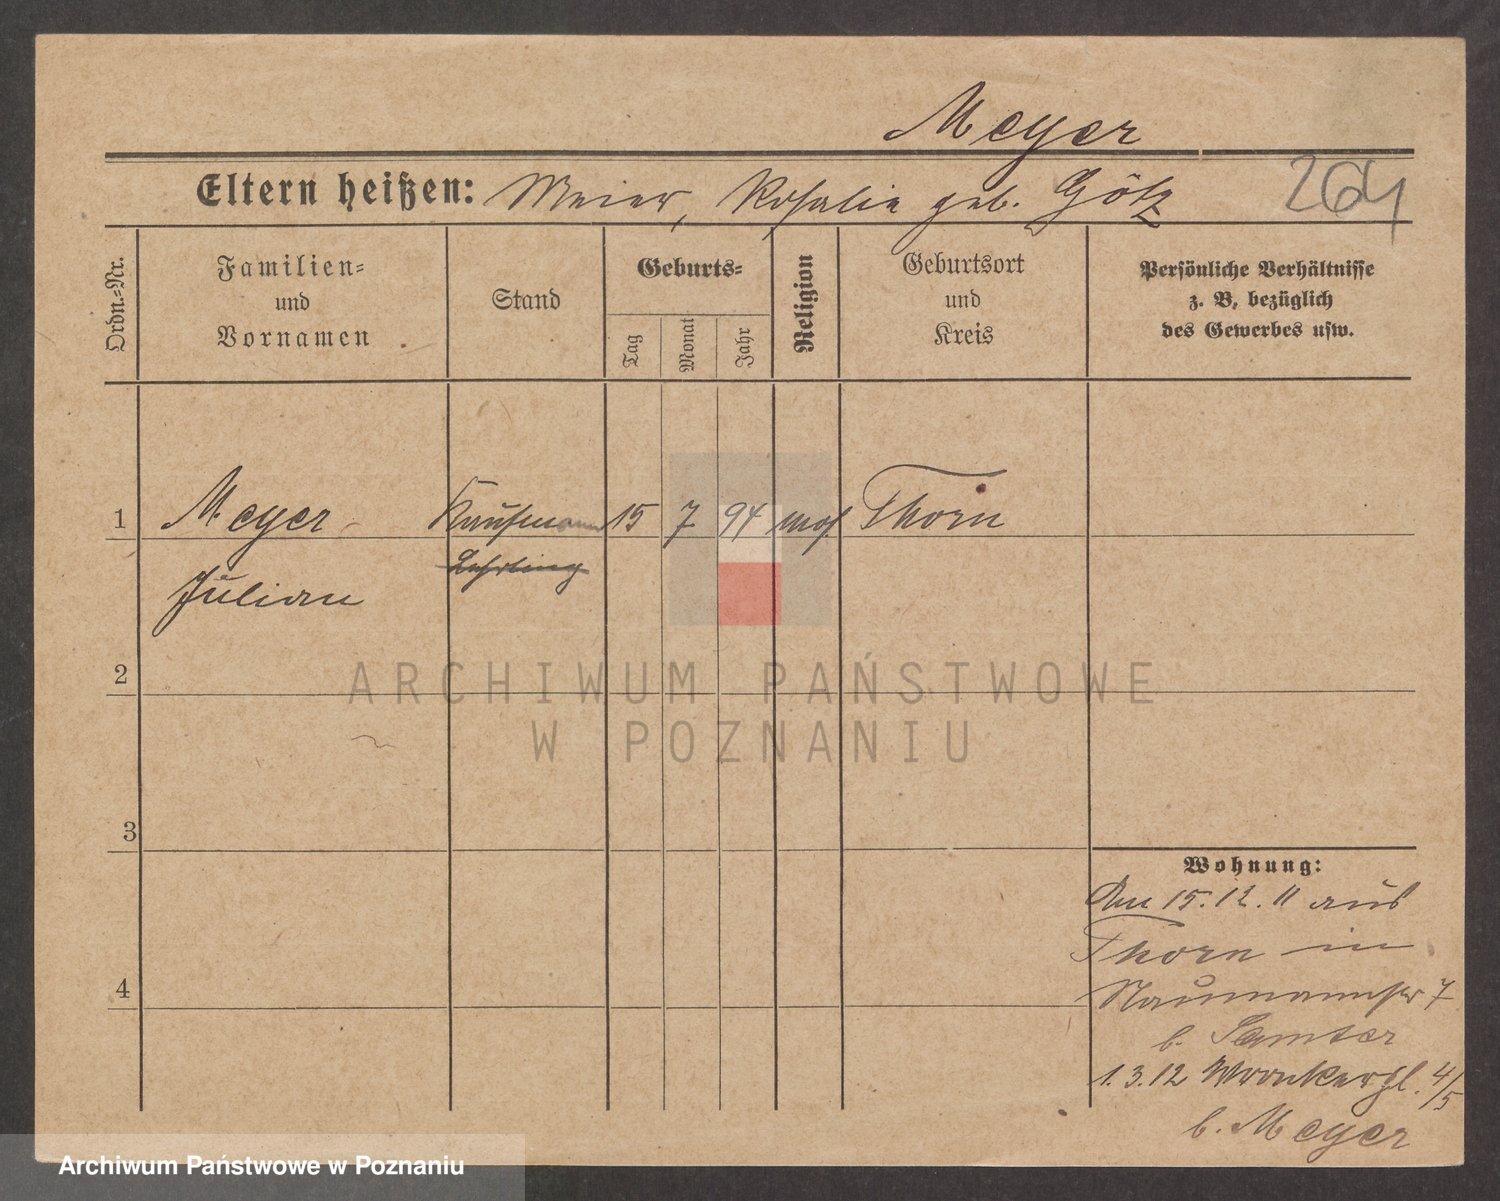 Meyer
Eltern heißen: Meier, Rosalie geb. Götz
264
Ordn.-Nr.
Familien-
und
Vornamen
Stand
Geburts-
Tag
Monat
Jahr
Religion
Geburtsort
und
Kreis
Persönliche Verhältnisse
z. B. bezüglich
des Gewerbes usw.
1 Meyer Kaufmann 15 7 94 mos. Thorn
Lehrling
Julian
2
3
4
Wohnung:
Am 15.12.11 aus
Thorn in
Naumannstr 7
b. Samter
1.3.12 Wronkerpl. 4/5
b. Meyer
ARCHIWUM PAŃSTWOWE
W POZNANIU
Archiwum Państwowe w Poznaniu